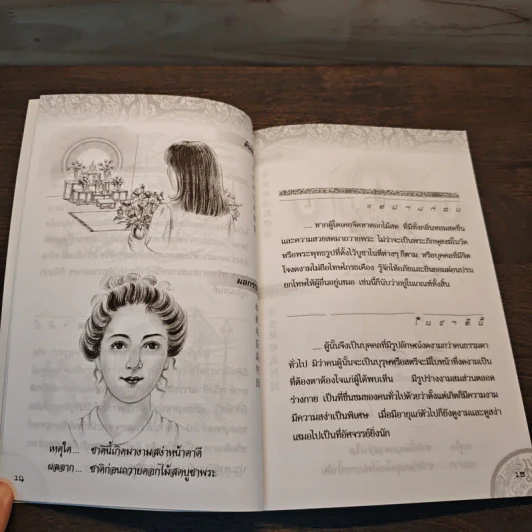 เหตุใด... ชาตินี้เกิดมางามสง่าหน้าตาดี
ผลจาก... ชาติก่อนถวายดอกไม้สดบูชาพระ
14
..... หากผู้ใดเคยจัดหาดอกไม้สด ที่มีทั้งกลิ่นหอมสดชื่น
และความสวยสดมาถวายพระ ไม่ว่าจะเป็นพระภิกษุสงฆ์ในวัด
หรือพระพุทธรูปที่ตั้งไว้บูชาในที่ต่างๆ ก็ตาม หรือบุคคลที่มีจิต
ใจงดงามไม่ถือโทษโกรธเคือง รู้จักให้อภัยและยินยอมผ่อนปรน
ยกโทษให้ผู้อื่นอยู่เสมอ เช่นนี้ก็นับว่าอยู่ในเกณฑ์ทั้งสิ้น
ใ น ช า ติ นี้
..... ผู้นั้นจึงเป็นบุคคลที่มีรูปลักษณ์งดงามกว่าคนธรรมดา
ทั่วไป มิว่าคนผู้นั้นจะเป็นบุรุษหรือสตรีจะมีใบหน้าที่งดงามเป็น
ที่ต้องตาต้องใจแก่ผู้ได้พบเห็น มีรูปร่างงามสมส่วนตลอด
ร่างกาย เป็นที่ชื่นชมของคนทั่วไปด้วยว่าตั้งแต่เกิดก็มีความงาม
มีความสง่าเป็นพิเศษ เมื่อมีอายุแก่ตัวไปก็ยังดูงามและดูสง่า
เสมอไปเป็นที่อัศจรรย์ยิ่งนัก